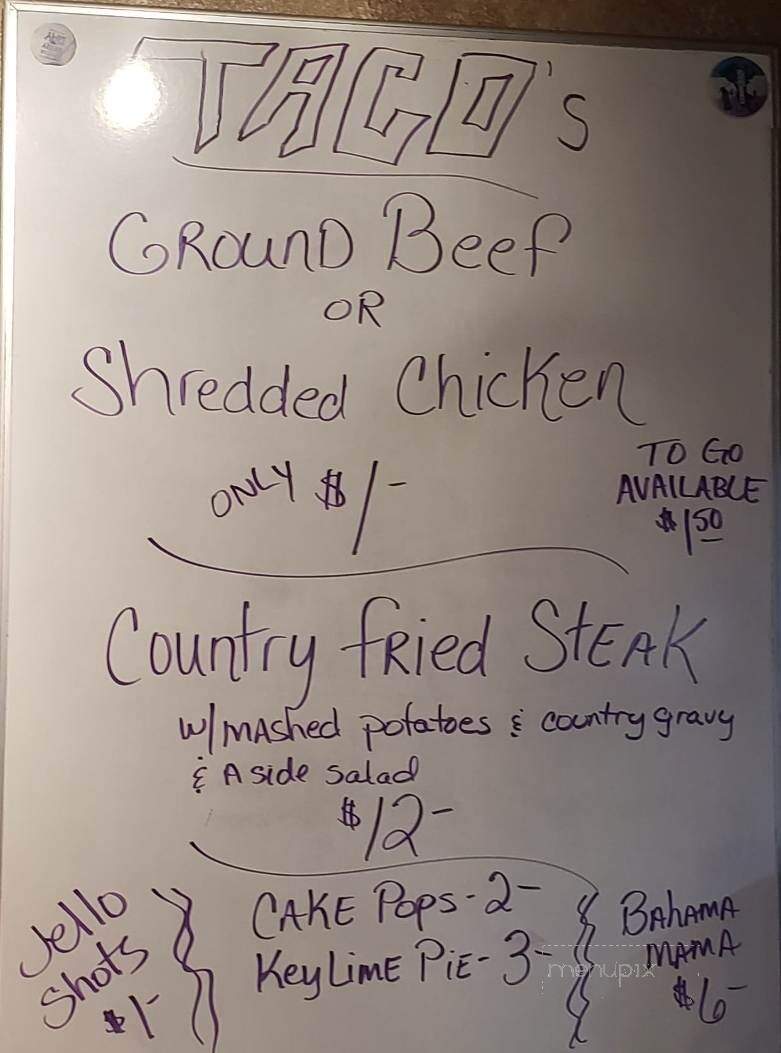 TACO's
GROUND Beef
OR
Shredded Chicken
ONLY $1-
TO GO
AVAILABLE
$1 50
Country fried StEAK
W/ MAshed potatoes & country gravy
& A side salad
$12-
Jello
Shots
$1-
CAKE Pops - 2-
Key LIME PIE - 3-
BAhAMA
MAMA
$6-
menupix